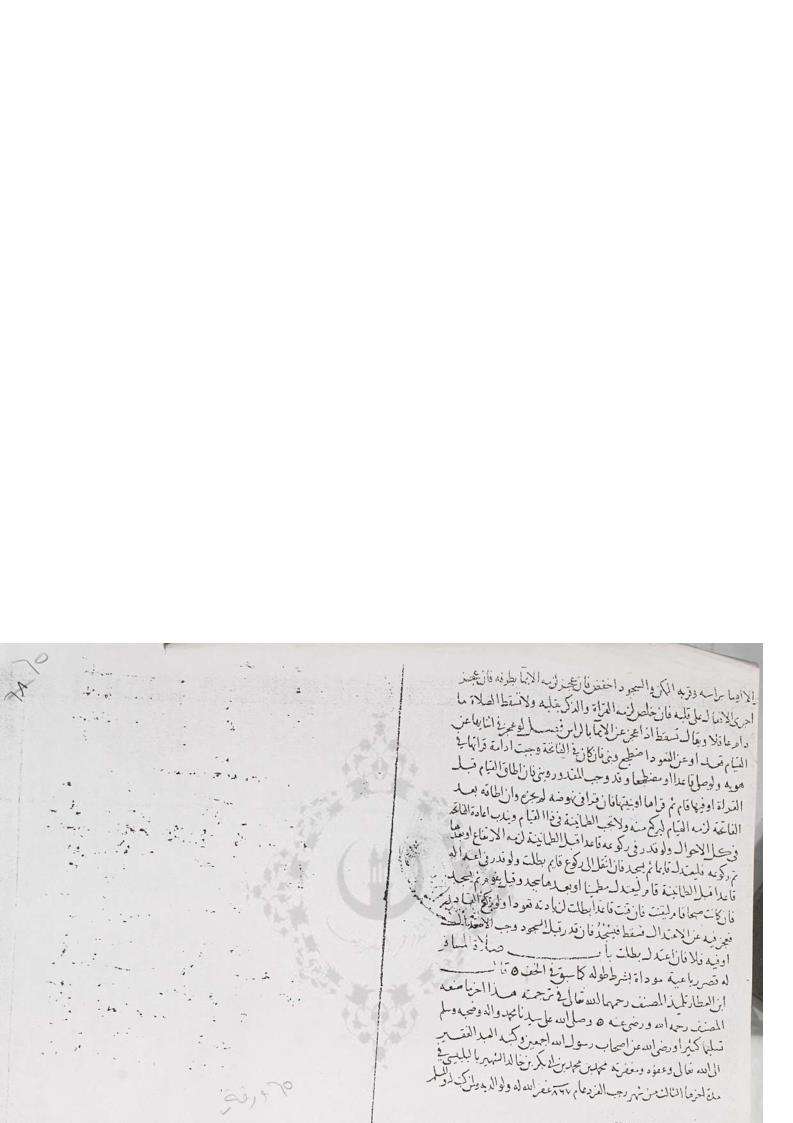 الا ايما براسه وقربه الركوع والسجود اخفض فان عجز لزمه الايما بطرفه فان عجز
اجرى الافعال على قلبه فان خلص لزمه القراة والذكر بقلبه ولا تسقط الصلاة ما
دام عاقلا ويقال تسقط اذا عجز عن الايما بالراس فصل لو عجز في اثنايها عن
القيام قعد او عن القعود اضطجع وبنى فان كان في الفاتحة وجبت ادامة قراتها في
هويه ولو صلى قاعدا او مضطجعا وقدر وجب المقدور وبنى فان اطاق القيام قبل
القراة او فيها قام ثم قراها او بقيتها فان قرا في نهوضه لم يجزه وان اطاقه بعد
الفاتحة لزمه القيام ليركع منه ولا تجب الطمانينة في ذا القيام ويندب اعادة الفاتحة
في كل الاحوال ولو قدر في ركوعه قاعدا قبل الطمانينة لزمه الارتفاع
ثم ركوعه فليعتدل قايما ثم يسجد فان انتقل الى ركوع قايم بطلت ولو قدر في اعتداله
قاعدا قبل الطمانينة قام ليعتدل مطمينا او بعدها سجد وقيل يقوم ثم يسجد
فان كانت صبحا قام ليقنت فان قنت قاعدا بطلت لزيادته قعودا ولو ركع القادر
فعجز فيه عن الاعتدال سقط فيسجد فان قدر قبل السجود وجب الاعتدال
او فيه فلا فان اعتدل بطلت باب صلاة المسافر
له قصر رباعية موداة بشرط طوله كما سبق في الخف ٥ قال
ابن العطار تلميذ المصنف رحمهما الله تعالى في ترجمته هذا اخر ما صنعه
المصنف رحمه الله ورضي عنه ٥ وصلى الله على سيدنا محمد واله وصحبه وسلم
تسليما كثيرا ورضي الله عن اصحاب رسول الله اجمعين وكتبه العبد الفقير
الى الله تعالى وعفوه ومغفرته محمد بن محمد بن محمد بن ابي بكر بن خالد الشهير بالبلبيسي في
مدة اخرها الثالث من شهر رجب الفرد عام ٨٦٧ غفر الله له ولوالديه
٦٥
٦٥ ورقة